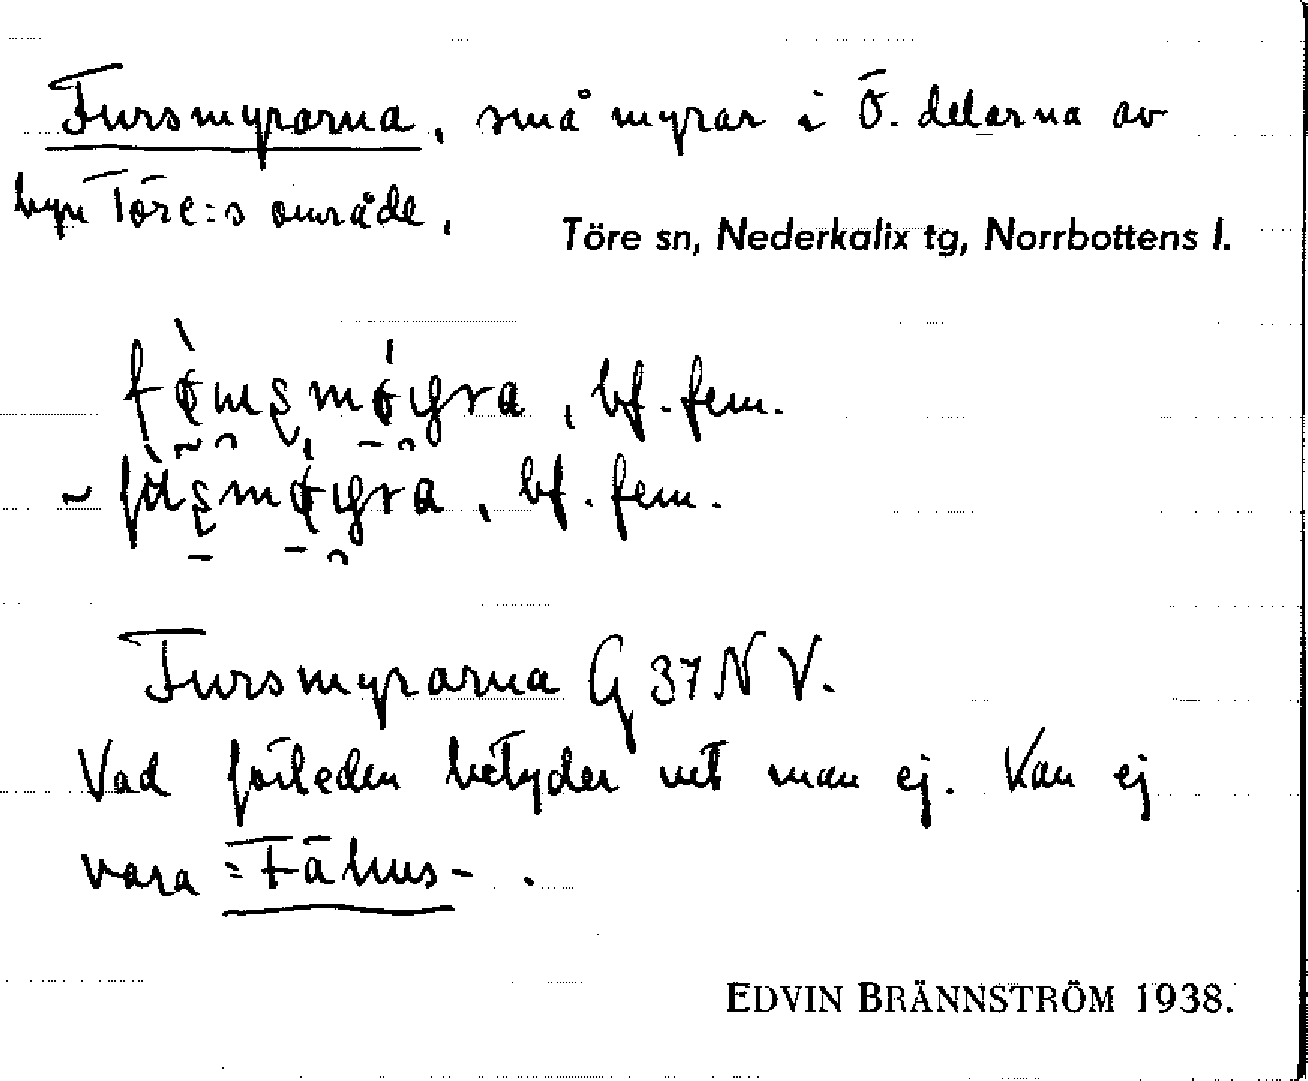 Fursmyrarna, små myrar i Ö. delarna av
byn Töre:s område.
Töre sn, Nederkalix tg, Norrbottens l.
bf. fem.
~ bf. fem.
Fursmyrarna G 37 N V.
Vad förleden betyder vet man ej. Kan ej
vara = Fähus- .
EDVIN BRÄNNSTRÖM 1938.